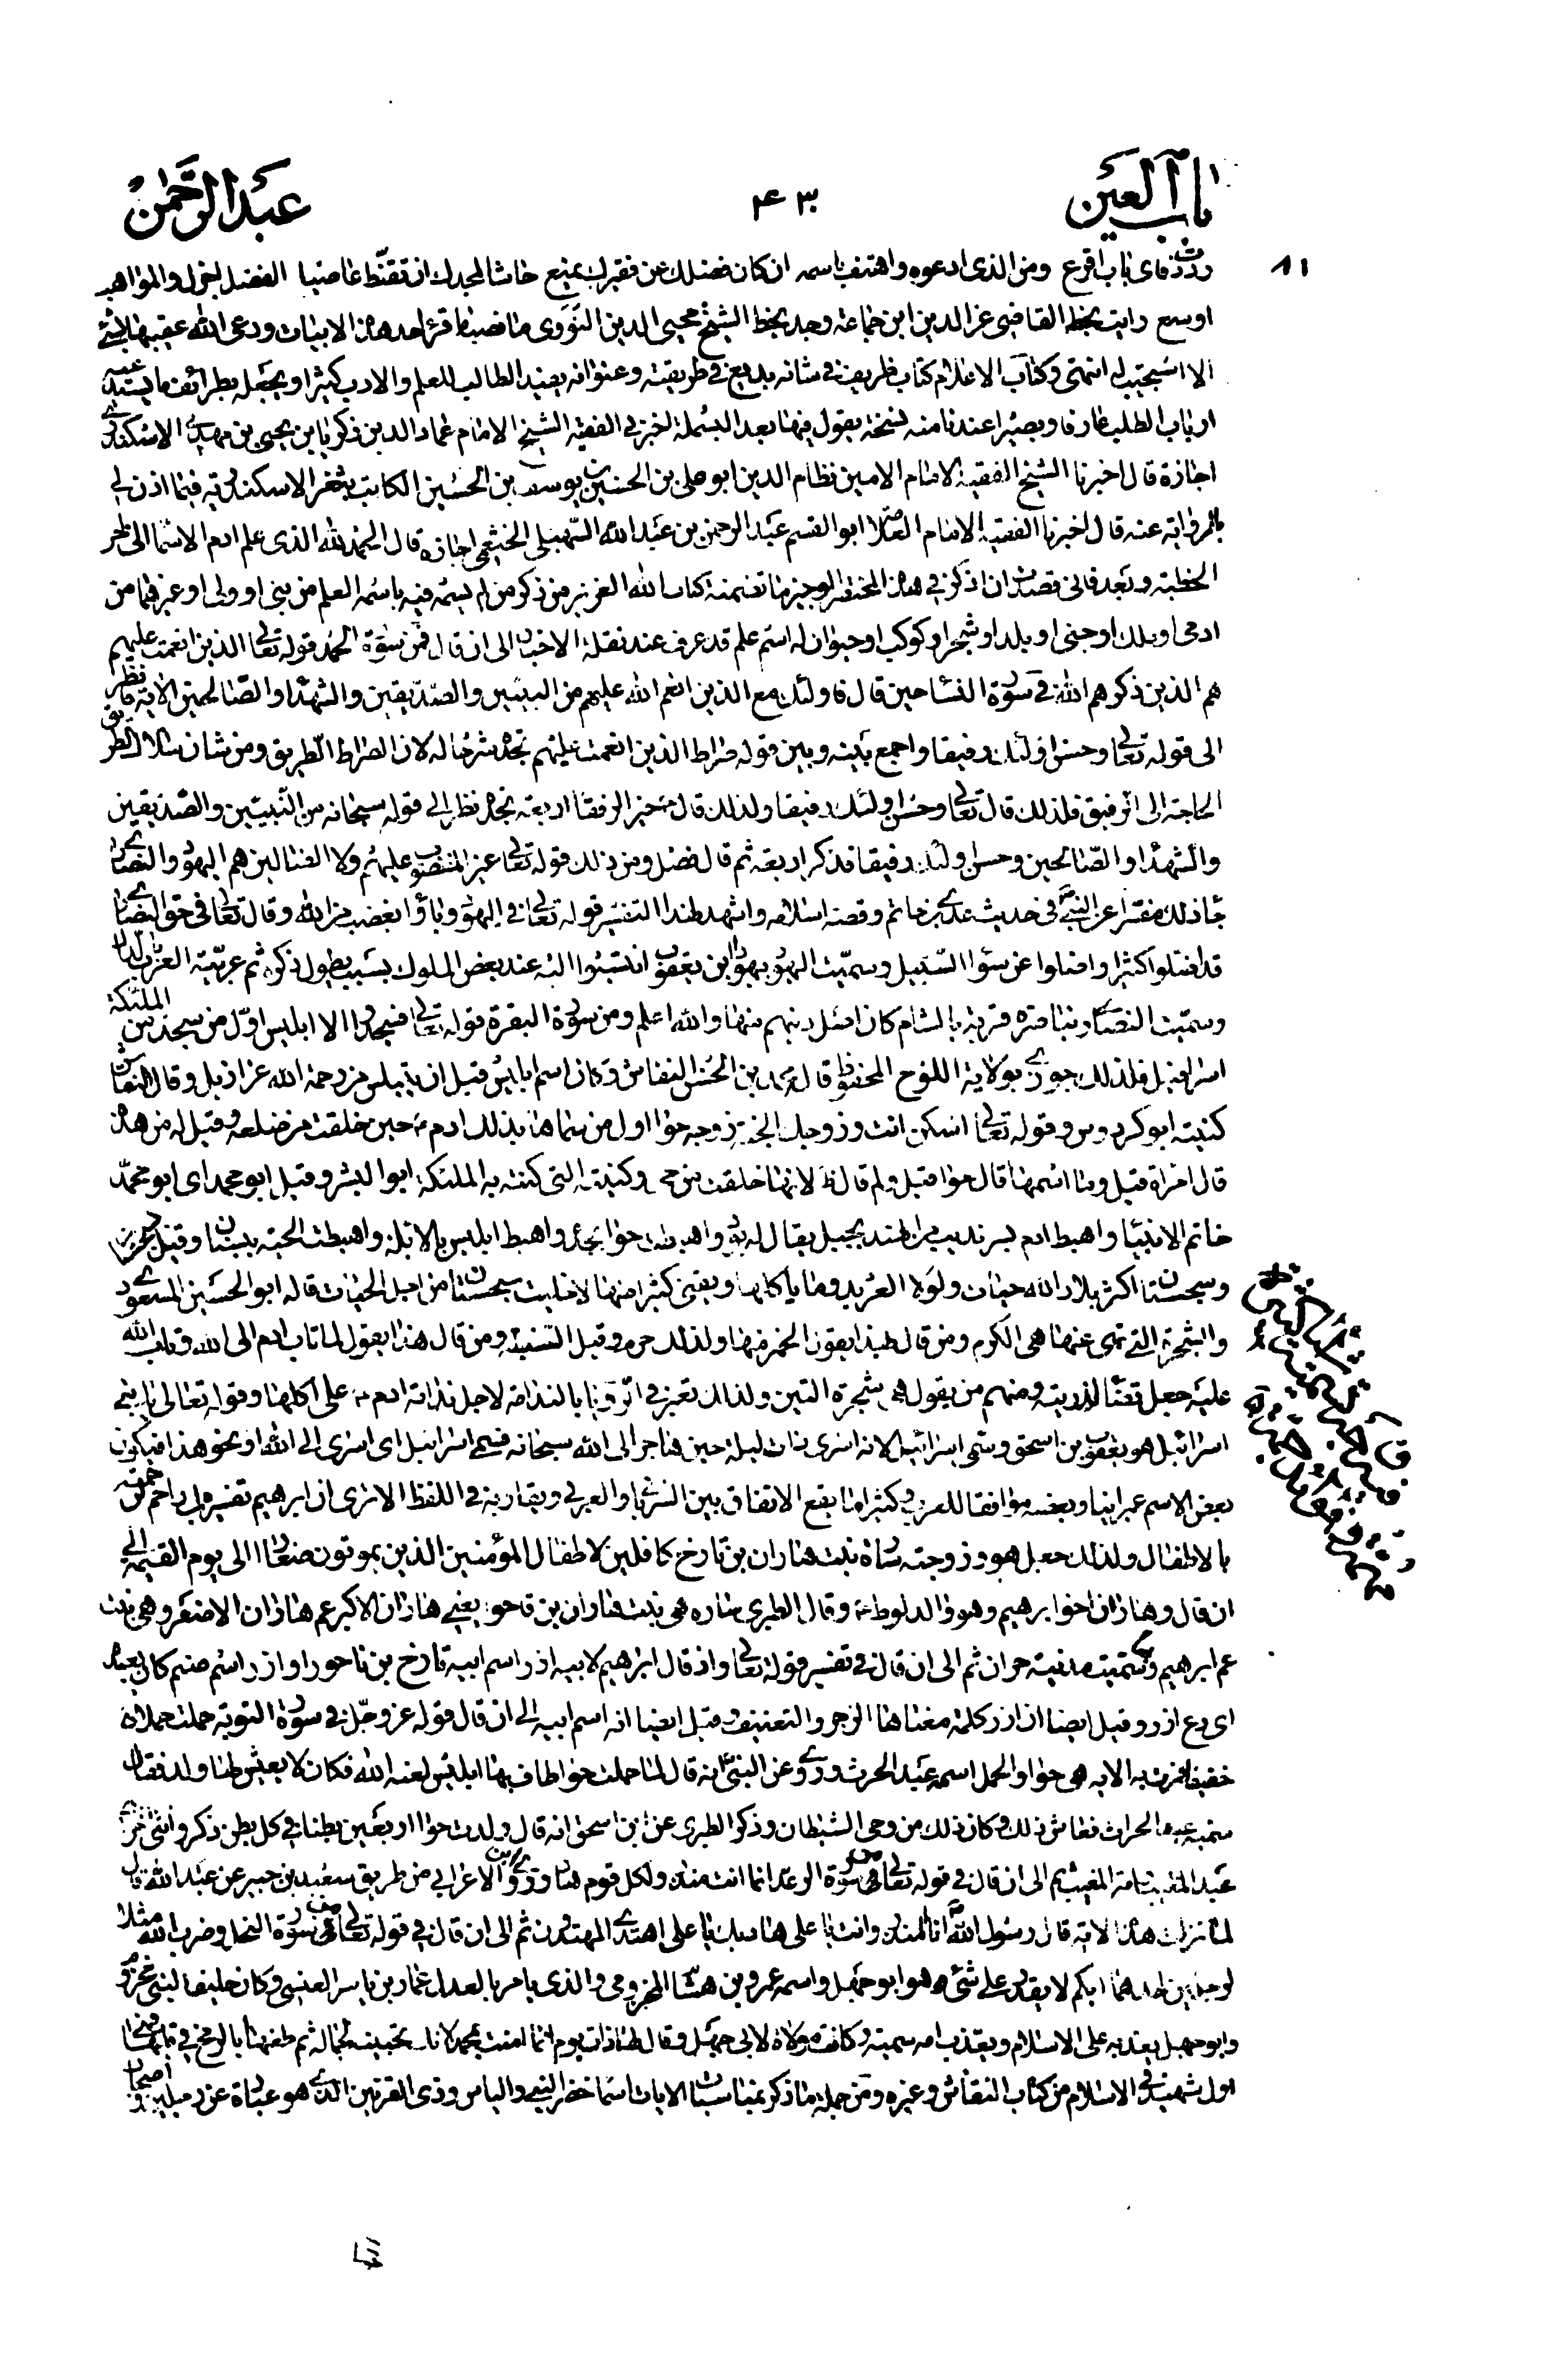 باب العين
۴۳
عبد الرحمن
رددت فاى باب اقرع ومن الذى ادعوه واهتف باسمه ان كان فضلك عن فقيرك يمنع حاشا لمجدك ان تقنّط عاصيا الفضل اجزل والمواهب
اوسع رايت بخط القاضى عز الدين ابن جماعة وجد بخط الشيخ محيى الدين النووى ما قرء احد هذه الابيات ودعى الله عقيبها بشئ
الا استجيب له انتهى وكتاب الاعلام كتاب ظريف فى شانه بديع فى طريقته وعنوانه يفيد الطالب للعلم والادب كثيرا ويجعله بطرائف ما يستفيد عنه
ارباب الطلب عارفا وبصيرا عندنا منه نسخة يقول فيها بعد البسملة اخبرنى الفقيه الشيخ الامام عماد الدين زكريا بن يحيى بن مهدى الاسكندرى
اجازة قال اخبرنا الشيخ الفقيه الامام الامين نظام الدين ابو على بن الحسين بن يوسف بن الحسين الكاتب بثغر الاسكندرية فيما اذن لى
بالرواية عنه قال اخبرنا الفقيه الامام ابو القسم عبد الرحمن بن عبد الله السهيلى الخثعمى اجازه قال الحمد لله الذى علم ادم الاسما الى اخر
الخطبة وبعد فانى قصدت ان اذكر فى هذا المختصر الوجيز ما تضمنه كتاب الله العزيز من ذكر من لم يسمه فيه باسمه العلم من نبى او ولى او غيرهما من
ادمى او ملك او جنى او بلد او شجر او كوكب او حيوان له اسم علم قد عرف عند نقلة الاخبار الى ان قال فمن سورة الحمد قوله تعالى الذين انعمت عليهم
هم الذين ذكرهم الله فى سورة النسا حين قال فاولئك مع الذين انعم الله عليهم من النبيين والصديقين والشهدا والصالحين الاية فانظر
الى قوله تعالى وحسن اولئك رفيقا واجمع بينه وبين قوله صراط الذين انعمت عليهم تجده شرحا له لان الصراط الطريق ومن شان سالك الطريق
الحاجة الى الرفيق فلذلك قال تعالى وحسن اولئك رفيقا ولذلك قال خير الرفقا اربعة نظر الى قوله سبحانه من النبيين والصديقين
والشهدا والصالحين وحسن اولئك رفيقا فذكر اربعة ثم قال فصل ومن ذلك قوله تعالى غير المغضوب عليهم ولا الضالين هم اليهود والنصارى
جا ذلك مفسرا عن النبى فى حديث عدى بن حاتم وقصة اسلامه ويشهد لهذا التفسير قوله تعالى فى اليهود وباؤا بغضب من الله وقال تعالى فى حق النصارى
قد اضلوا كثيرا وضلوا عن سوا السبيل وسميت اليهود بيهودا بن يعقوب انتسبوا اليه عند بعض الملوك بسبب يطول ذكره ثم عربته العرب
وسميت النصارى بناصره قرية بالشام كان اصل دينهم منها والله اعلم ومن سورة البقرة قوله تعالى فسجدوا الا ابليس اول من سجد من الملئكة
اسرافيل فلذلك جوزى بولاية اللوح المحفوظ قال محمد بن الحسن النقاش وكان اسم ابليس قبل ان يبلس من رحمة الله عزازيل وقال النقاش
كنيته ابو كردوس وقوله تعالى اسكن انت وزوجك الجنة زوجه حوا اول من سماها بذلك ادم حين خلقت من ضلعه وقيل له من هذه
قال امراة قيل وما اسمها قال حوا قيل ولم قال لانها خلقت من حى وكنيته التى كنته به الملئكة ابو البشر وقيل ابو محمد اى ابو محمد
خاتم الانبيا واهبط ادم بسرنديب من الهند بجبل يقال له واهبطت حوا بجدة واهبط ابليس بالابلة واهبطت الحية وقيل
وسجستان اكثر بلاد الله حيات ولولا العربد وما ياكلها ويفنى كثيرا منها لاخليت سجستان من اجل الحيات قاله ابو الحسين المسعودى
والشجرة التى نهى عنها هى الكرم ومن قال بهذا يقول الخمر منها ولذلك حرم وقيل السنبلة ومن قال هذا يقول لما تاب ادم الى الله وتاب الله
عليه جعل لذريته ومنهم من يقول هى شجرة التين ولذلك تعبر فى الرؤيا بالندامة لاجل ندامة ادم على اكلها وقوله تعالى يا بنى
اسرائيل هو يعقوب بن اسحق وسمى اسرائيل لانه اسرى ذات ليلة حين هاجر الى الله سبحانه فسمى اسرائيل اى اسرى الى الله او نحو هذا فيكون
بعض الاسم عبرانيا وبعضه موافقا للعربى وكثيرا ما يقع الاتفاق بين السريانى والعربى ويقاربه فى اللفظ الا ترى ان ابرهيم تفسيره اب راحم لرحمته
بالاطفال ولذلك جعل هو وزوجته سارة بنت هاران بن تارخ كافلين لاطفال المؤمنين الذين يموتون صغارا الى يوم القيمة الى
ان قال وهاران اخو ابرهيم وهو والد لوط وقال الطبرى ساره هى بنت هاران بن ناحور يعنى هاران الاكبر عم هاران الاصغر وهى بنت
عم ابرهيم وسميت مدينة حران ثم الى ان قال فى تفسير قوله تعالى واذ قال ابرهيم لابيه ازر اسم ابيه تارخ بن ناحور او ازر اسم صنم كان يعبده
اى دع ازر وقيل ايضا ان ازر كلمة معناها الزجر والتعنيف وقيل ايضا انه اسم ابيه الى ان قال قوله عز وجل فى سورة التوبة حملت حملا
خفيفا فمرت به الاية هى حوا والحمل اسمه عبد الحرث وروى عن النبى انه قال لما حملت حوا طاف بها ابليس لعنه الله فكان لا يعيش لها ولد فقال
سميه عبد الحارث فعاش ذلك وكان ذلك من وحى الشيطان وذكر الطبرى عن ابن اسحق انه قال ولدت حوا اربعين بطنا فى كل بطن ذكر وانثى
عبد المغيث وامة المغيث ثم الى ان قال فى قوله تعالى فى سورة الرعد انما انت منذر ولكل قوم هاد وروى ابن الاعرابى من طريق سعيد بن جبير عن عبد الله قال
لما نزلت هذه الاية قال رسول الله انا المنذر وانت يا على هاد بك يا على اهتدى المهتدون ثم الى ان قال فى قوله تعالى فى سورة النحل وضرب الله مثلا
رجلين احدهما ابكم لا يقدر على شئ هو ابو جهل واسمه عمرو بن هشام المخزومى والذى يامر بالعدل عمار بن ياسر العنسى وكان حليفا لبنى مخزوم
وابو جهل يعذبه على الاسلام ويعذب امه سمية وكانت مولاة لابى جهل وقال لها ذات يوم انما امنت بمحمد لانك تحبينه لجماله ثم طعنها بالرمح فى
اول شهيد فى الاسلام من كتاب النقاش وغيره ومن جملة ما ذكر بمناسبات الايات اسما خضر النبى والياس وذى القرنين الذى هو